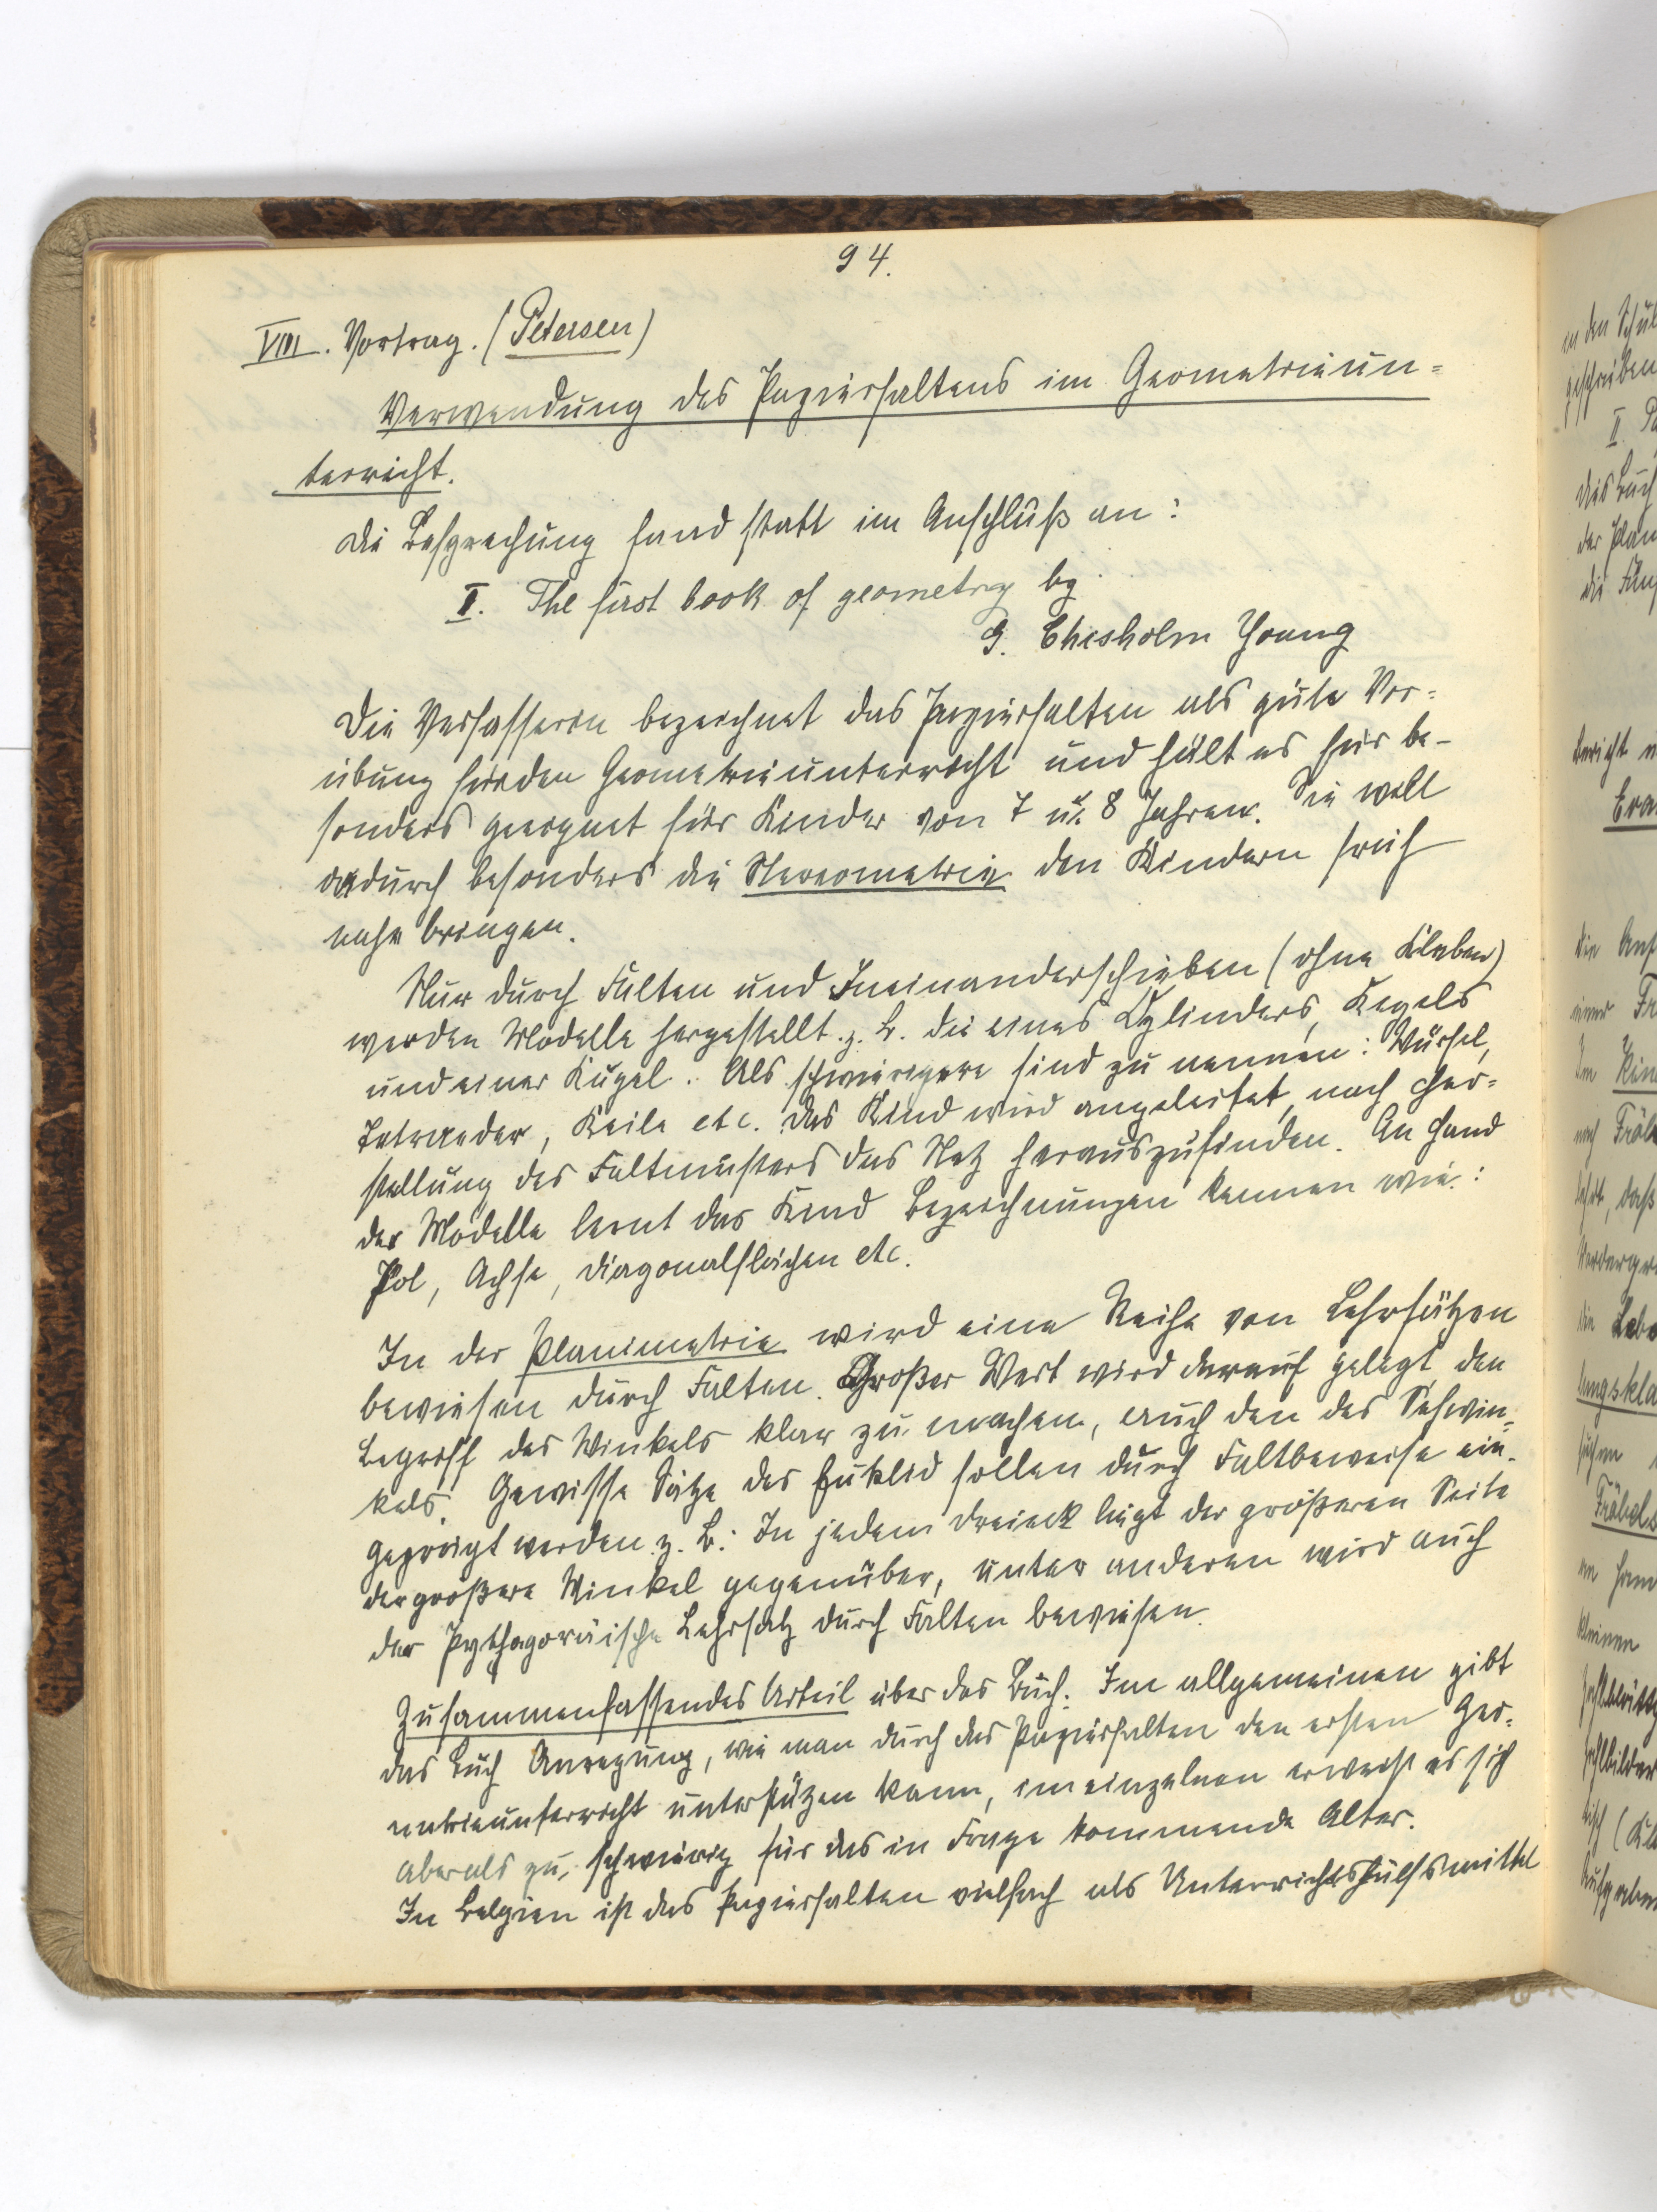 94.
VIII. Vortrag. (Petersen)
Verwendung des Papierfaltens im Geometrieun=
terricht.
Die Besprechung fand statt im Anschluß an:
I. The first book of geometry by
G. Chisholm Young
Die Verfasserin bezeichnet das Papierfalten als gute Vor=
übung für den Geometrieunterricht und hält es für be-
sonders geeignet für Kinder von 7 u. 8 Jahren. Sie will
dadurch besonders die Stereometrie den Kindern früh
nahe bringen.
Nur durch Falten und Ineinanderschieben (ohne Kleben)
werden Modelle hergestellt z. B. die eines Cylinders, Kegels
und einer Kugel. Als schwierigere sind zu nennen: Würfel,
Tetraeder, Keile etc. Das Kind wird angeleitet, nach Her=
stellung des Faltmusters das Netz herauszufinden. An Hand
der Modelle lernt das Kind Bezeichnungen kennen wie:
Pol, Achse, Diagonalflächen etc.
In der Planimetrie wird eine Reihe von Lehrsätzen
bewiesen durch Falten. Großer Wert wird darauf gelegt, den
Begriff des Winkels klar zu machen, auch den des Sehwin=
kels. Gewisse Sätze des Euklid sollen durch Faltbeweise ein-
geprägt werden z. B.: In jedem Dreieck liegt der größeren Seite
der größere Winkel gegenüber, unter anderen wird auch
der Pythagoräische Lehrsatz durch Falten bewiesen.
Zusammenfassendes Urteil über das Buch. Im allgemeinen gibt
das Buch Anregung, wie man durch das Papierfalten den ersten Geo=
metrieunterricht unterstützen kann, im einzelnen erweist es sich
aber als zu schwierig für das in Frage kommende Alter.
In Belgien ist das Papierfalten vielfach als Unterrichtshülfsmittel